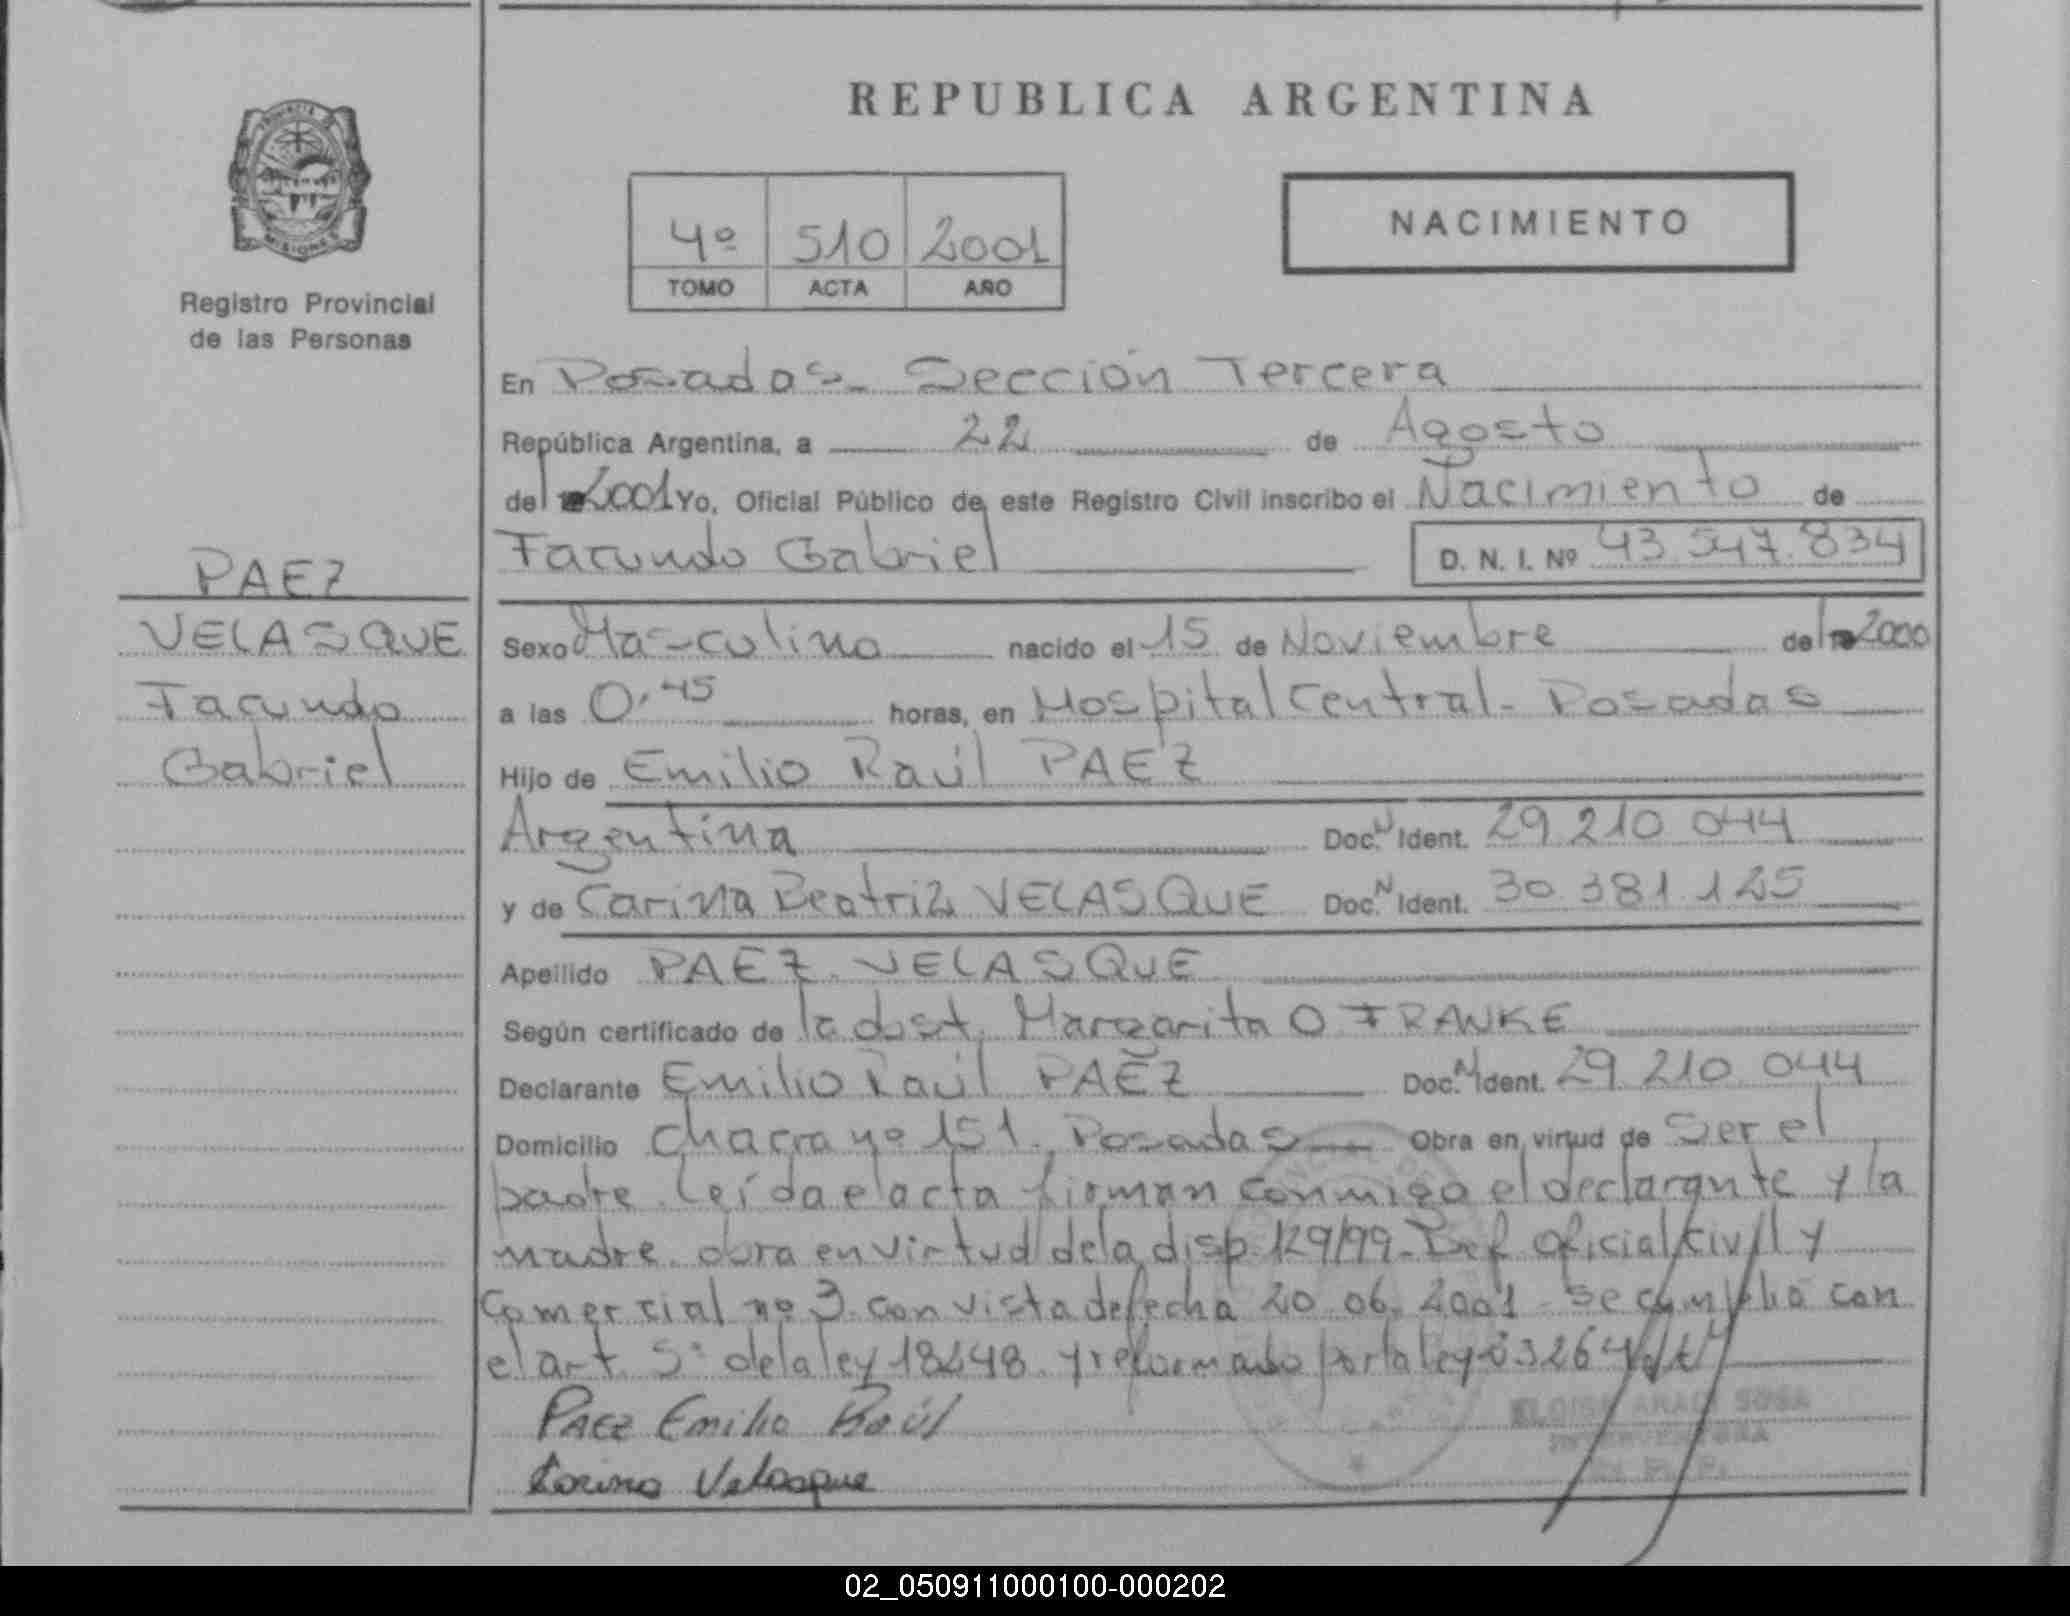 REPUBLICA ARGENTINA
PROVINCIA DE
MISIONES
Registro Provincial
de las Personas
4º 510 2001
TOMO ACTA AÑO
NACIMIENTO
En Posadas - Sección Tercera
República Argentina, a 22 de Agosto
del 2001 Yo, Oficial Público de este Registro Civil inscribo el Nacimiento de
Facundo Gabriel D. N. I. Nº 43.547.834
PAEZ
VELASQUE
Facundo
Gabriel
Sexo Masculino nacido el 15 de Noviembre del 2000
a las 0,45 horas, en Hospital Central - Posadas
Hijo de Emilio Raúl PAEZ
Argentina Doc. N Ident. 29.210.044
y de Carina Beatriz VELASQUE Doc. N Ident. 30.381.125
Apellido PAEZ VELASQUE
Según certificado de la obst. Margarita O FRANKE
Declarante Emilio Raúl PAEZ Doc. N Ident. 29.210.044
Domicilio Chacra nº 151. Posadas Obra en virtud de Ser el
padre. Leída el acta firman conmigo el declarante y la
madre. obra en virtud de la disp. 129/99 - Def. Oficial Civil y
Comercial nº 3 con vista de fecha 20.06.2001 - Se cumplió con
el art. 5º de la ley 18248 y reformado por la ley 23264
Paez Emilio Raúl
Carina Velasque
ARACI SOSA
INTERVENTORA
02_050911000100-000202